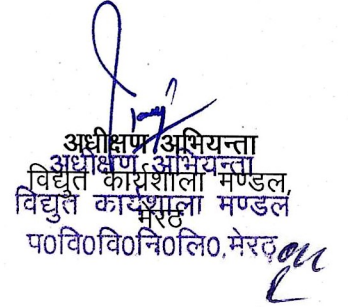 अधीक्षण अभियन्ता
अधीक्षण अभियन्ता
विद्युत कार्यशाला मण्डल,
विद्युत कार्यशाला मण्डल
मेरठ
प०वि०वि०नि०लि०, मेरठ